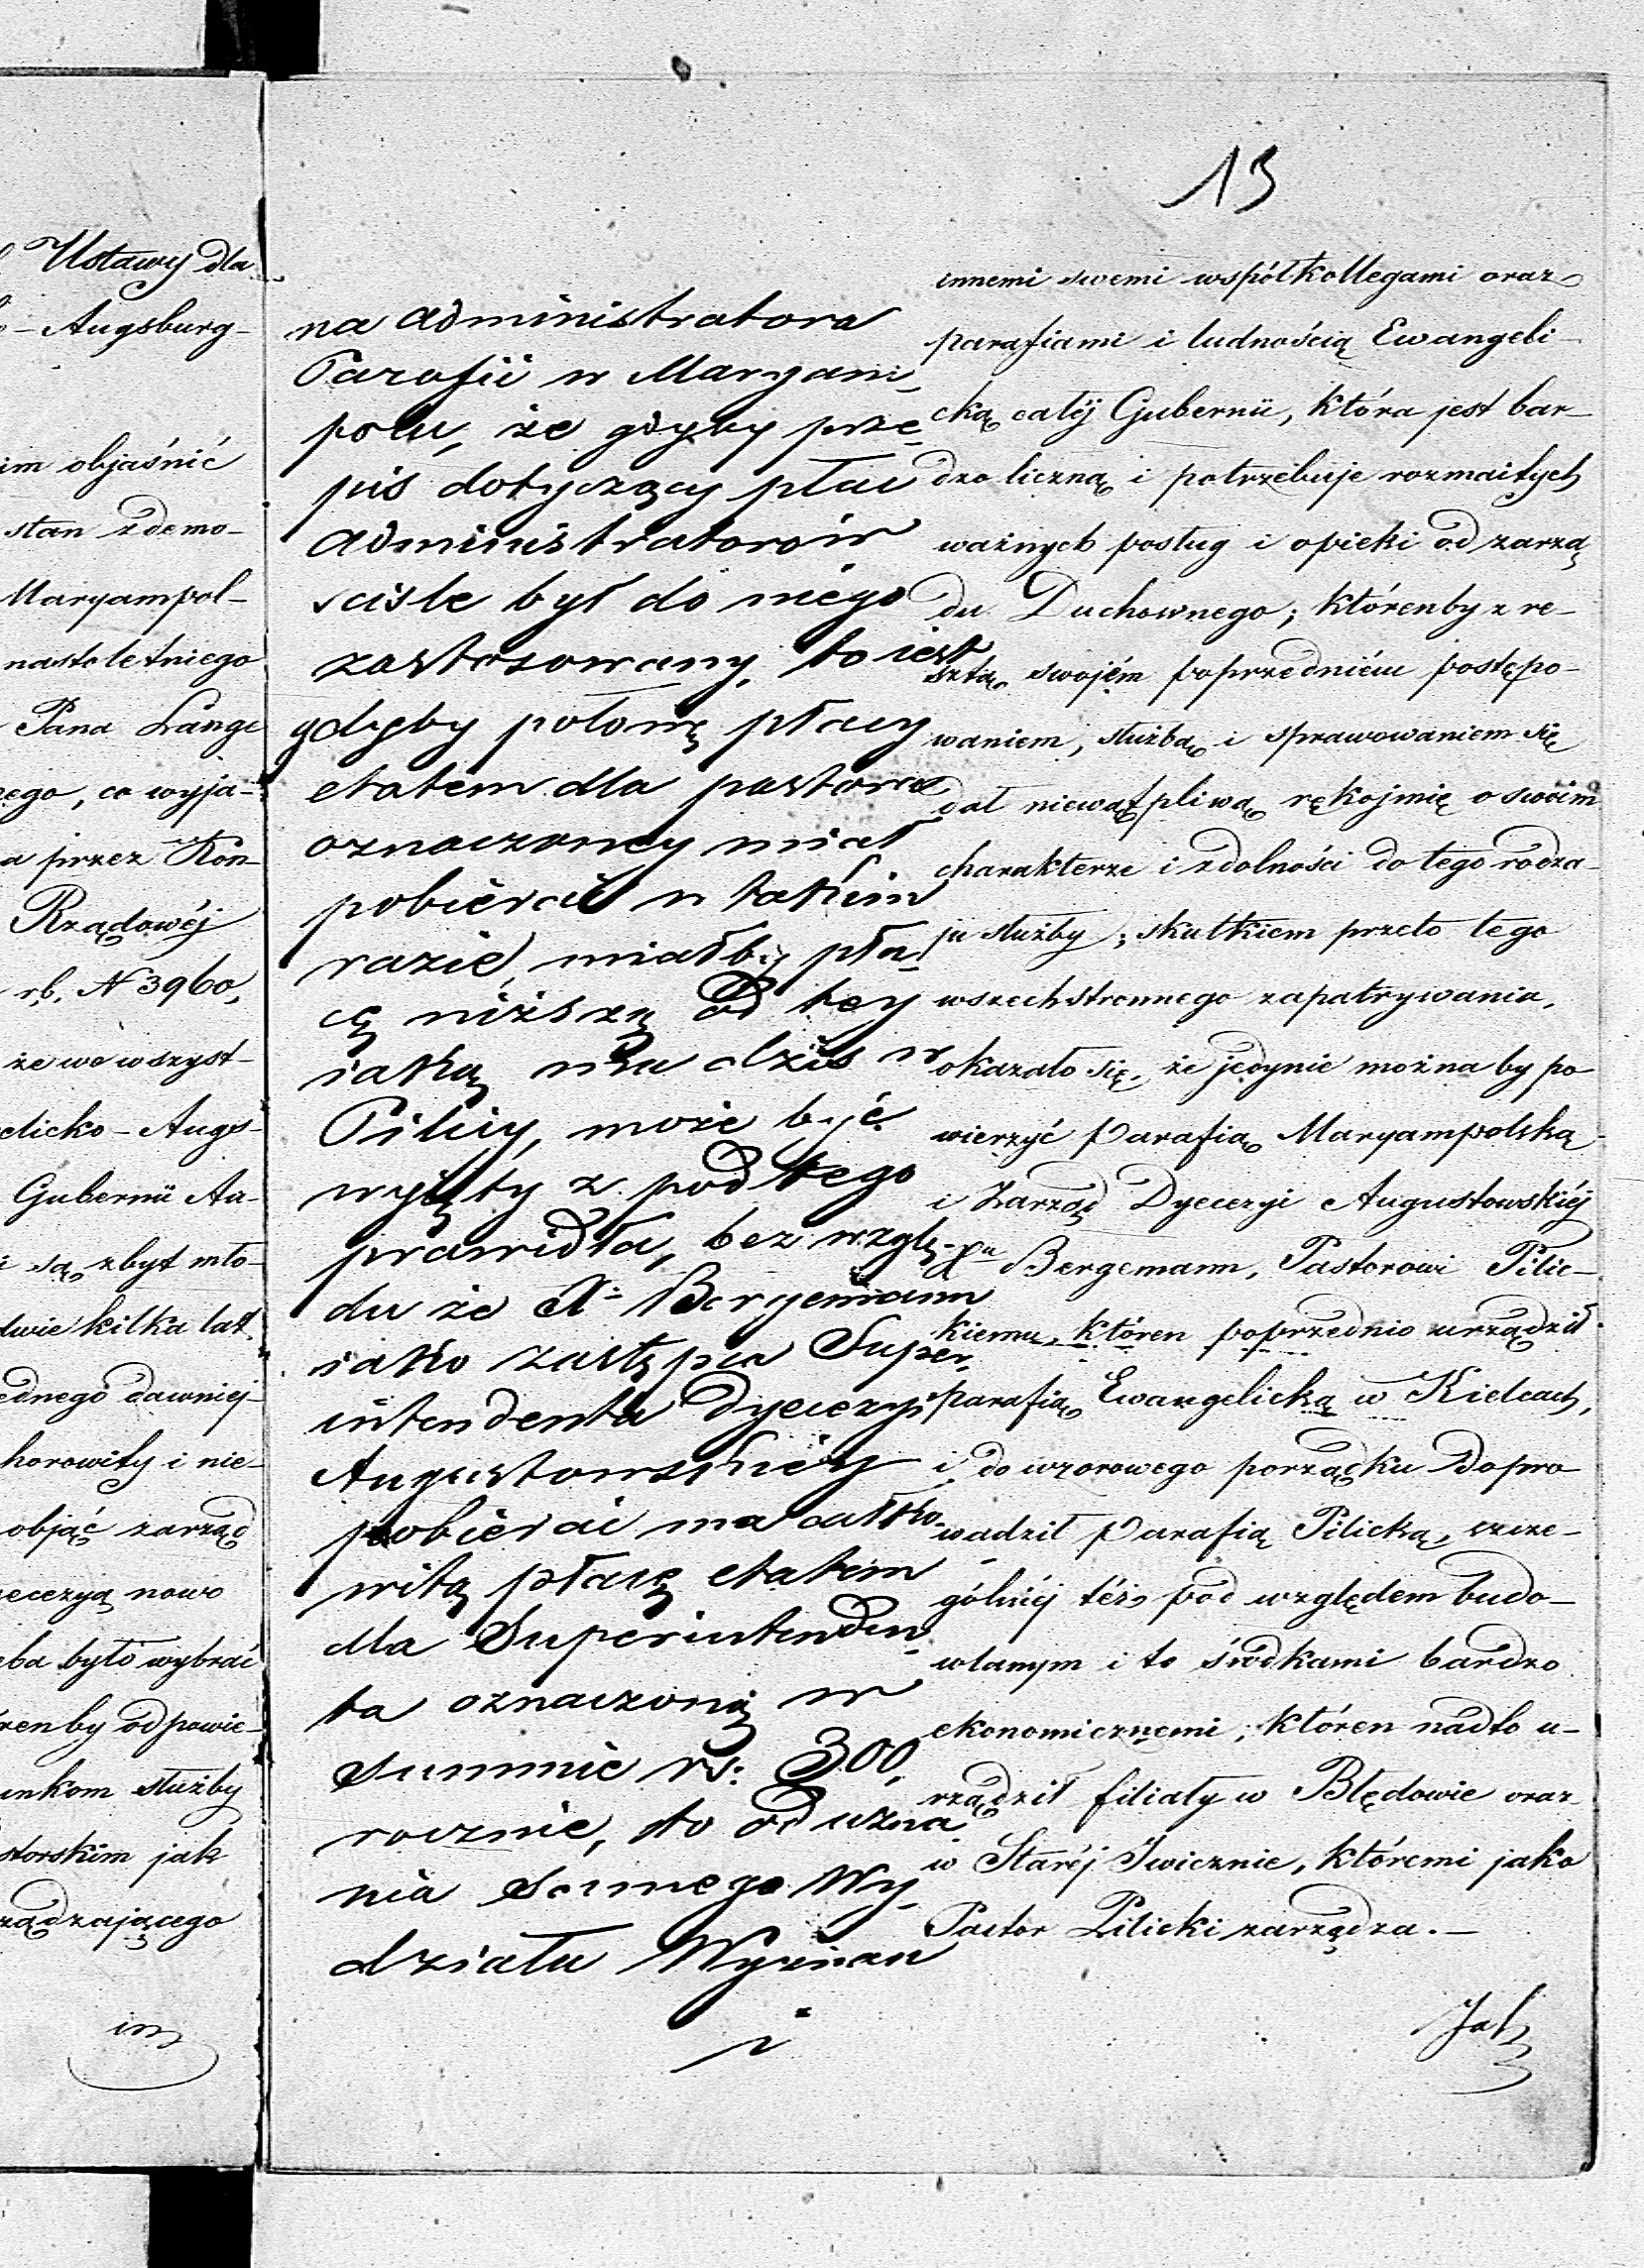 Ustawy dla
- Augsburg-
im objaśnić
stan zdemo-
Maryampol-
nastoletniego
Pana Lange
ego, co wyja-
a przez Kom-
Rządowéj
rb. N 3960,
że we wszyst-
elicko - Augs-
Gubernii Au-
i są zbyt mło-
dwie kilka lat
ednego dawniej-
horowity i nie-
objąć zarząd
yecezyą nowo
eba było wybrać
renby odpowie-
unkom służby
storskim jak
ządzającego
im
13
na administratora
Parafii w Maryam-
polu, że gdyby prze-
pis dotyczący płac
administratorów
scisle był do niego
zastosowany, to iest
gdyby połowę płacy
etatem dla pastora
oznaczoney miał
pobierać w takim
razie, miałby pła-
cę niższą od tey
iaką ma dziś w
Pilicy, może być
wyięty z pod tego
prawidła, bez wzglę-
du że X. Bergemann
iako zastępca Super-
intendenta Dyecezyi
Augustowskiéy
pobierać ma całko-
witą płacę etatem
dla Superintenden-
ta oznaczoną w
summie rs. 300,
rocznie, to od uzna-
nia samego Wy-
działu Wyznań
i
innemi swemi współkollegami oraz
parafiami i ludnością Ewangeli-
cką całéj Gubernii, która jest bar-
dzo liczną i potrzebuje rozmaitych
ważnych posług i opieki od zarzą-
du Duchownego; którenby z re-
sztą swojém poprzedniém postępo-
waniem, służbą i sprawowaniem się
dał niewątpliwą rękojmię o swoim
charakterze i zdolności do tego rodza-
ju służby; skutkiem przeto tego
wszechstronnego zapatrywania,
okazało się, że jedynie można by po
wierzyć Parafią Maryampolską
i Zarząd Dyecezyi Augustowskiéj
Xu Bergemann, Pastorowi Pilic-
kiemu, któren poprzednio urządził
parafią Ewangelicką w Kielcach,
i do wzorowego porządku dopro
wadził Parafią Pilicką, szcze-
gólniéj téż pod względem budo-
wlanym i to środkami bardzo
ekonomicznemi; któren nadto u-
rządził filiały w Błędowie oraz
w Staréj Iwicznie, któremi jako
Pastor Pilicki zarządza. -